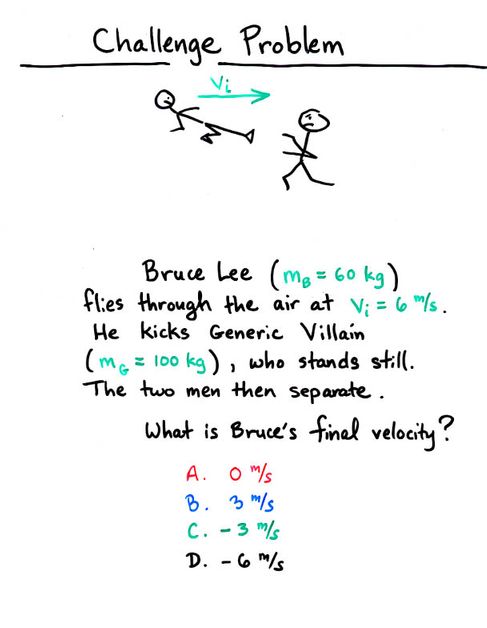 Challenge Problem
Vi
Bruce Lee (mB = 60 kg)
flies through the air at Vi = 6 m/s.
He kicks Generic Villain
(mG = 100 kg), who stands still.
The two men then separate.
What is Bruce's final velocity?
A. 0 m/s
B. 3 m/s
C. -3 m/s
D. -6 m/s